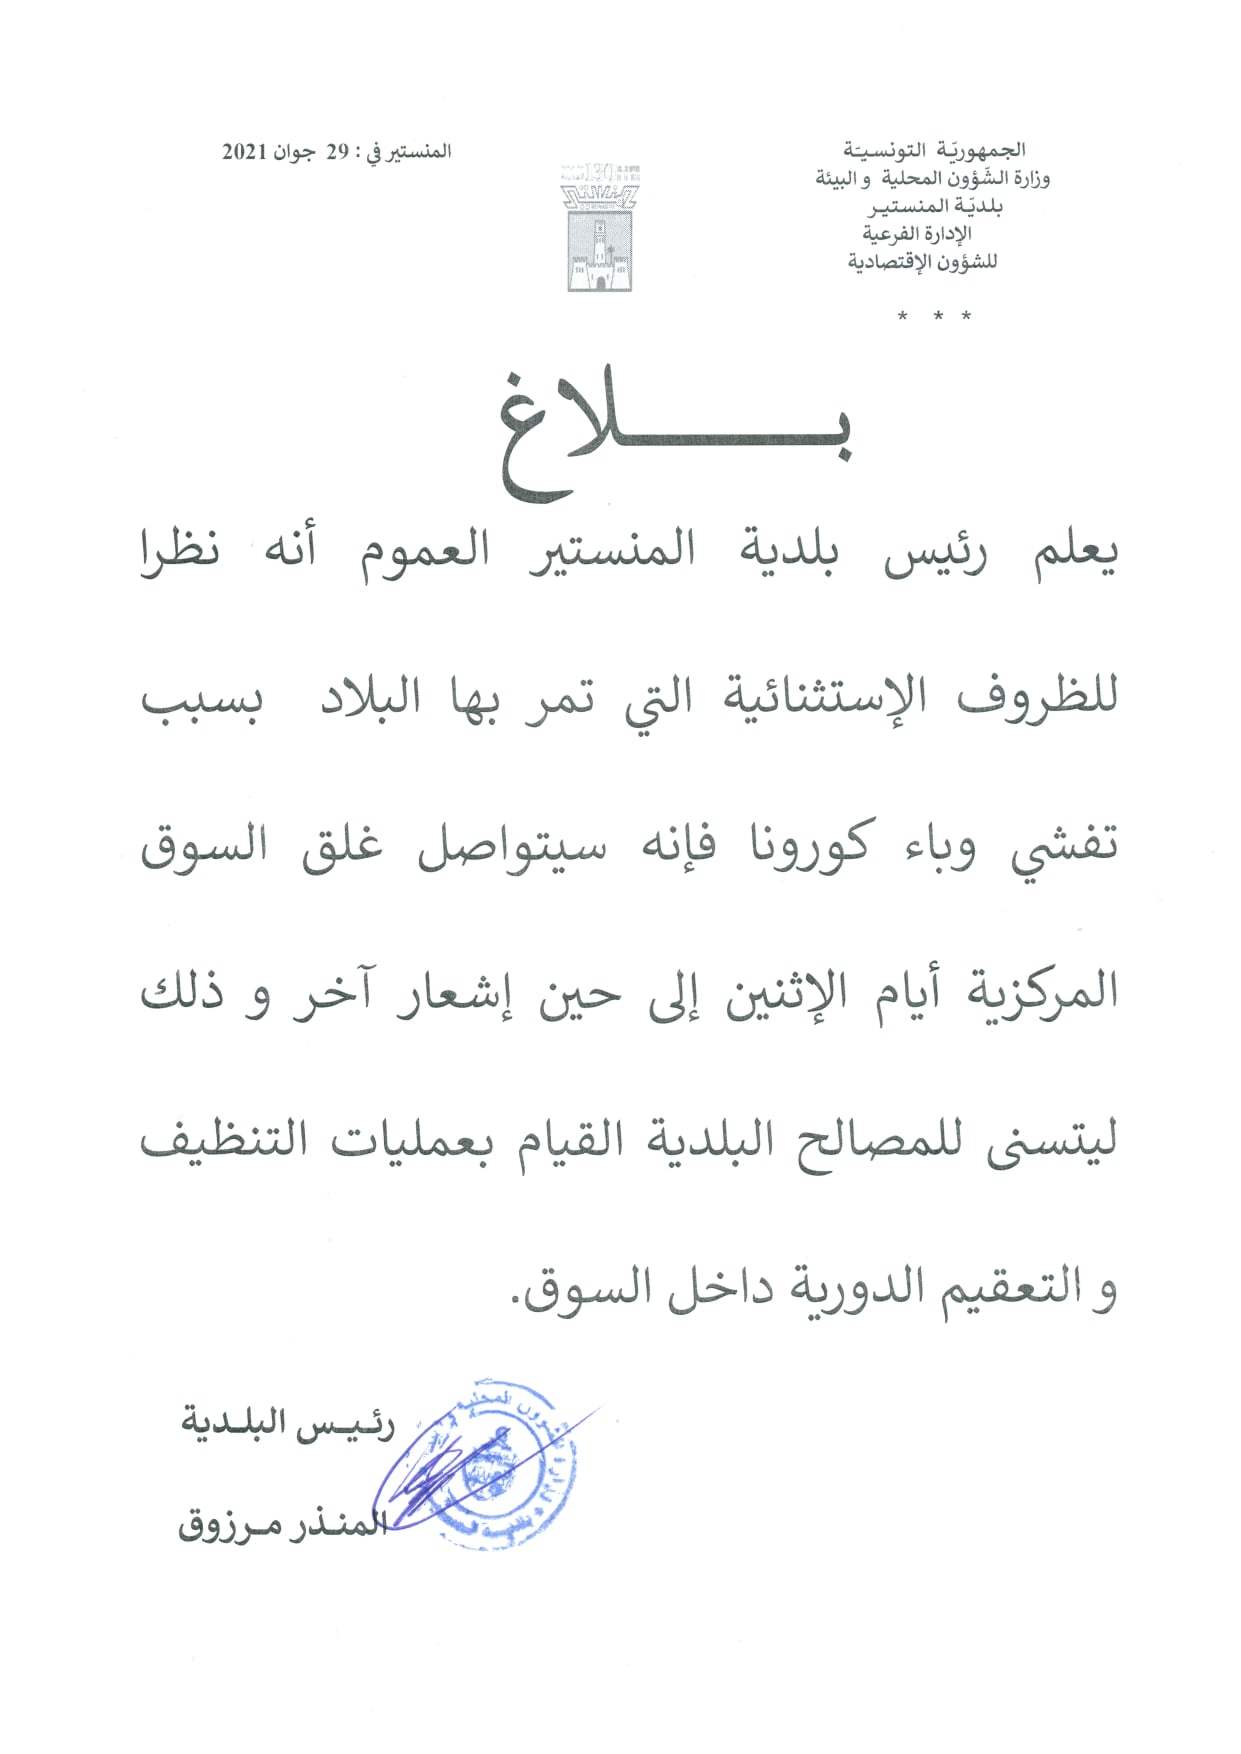 الجمهوريّة التونسيّة
وزارة الشّؤون المحلية و البيئة
بلديّة المنستير
الإدارة الفرعية
للشؤون الإقتصادية
* * *
المنستير في : 29 جوان 2021
بلاغ
يعلم رئيس بلدية المنستير العموم أنه نظرا
للظروف الإستثنائية التي تمر بها البلاد بسبب
تفشي وباء كورونا فإنه سيتواصل غلق السوق
المركزية أيام الإثنين إلى حين إشعار آخر و ذلك
ليتسنى للمصالح البلدية القيام بعمليات التنظيف
و التعقيم الدورية داخل السوق.
رئيس البلدية
المنذر مرزوق